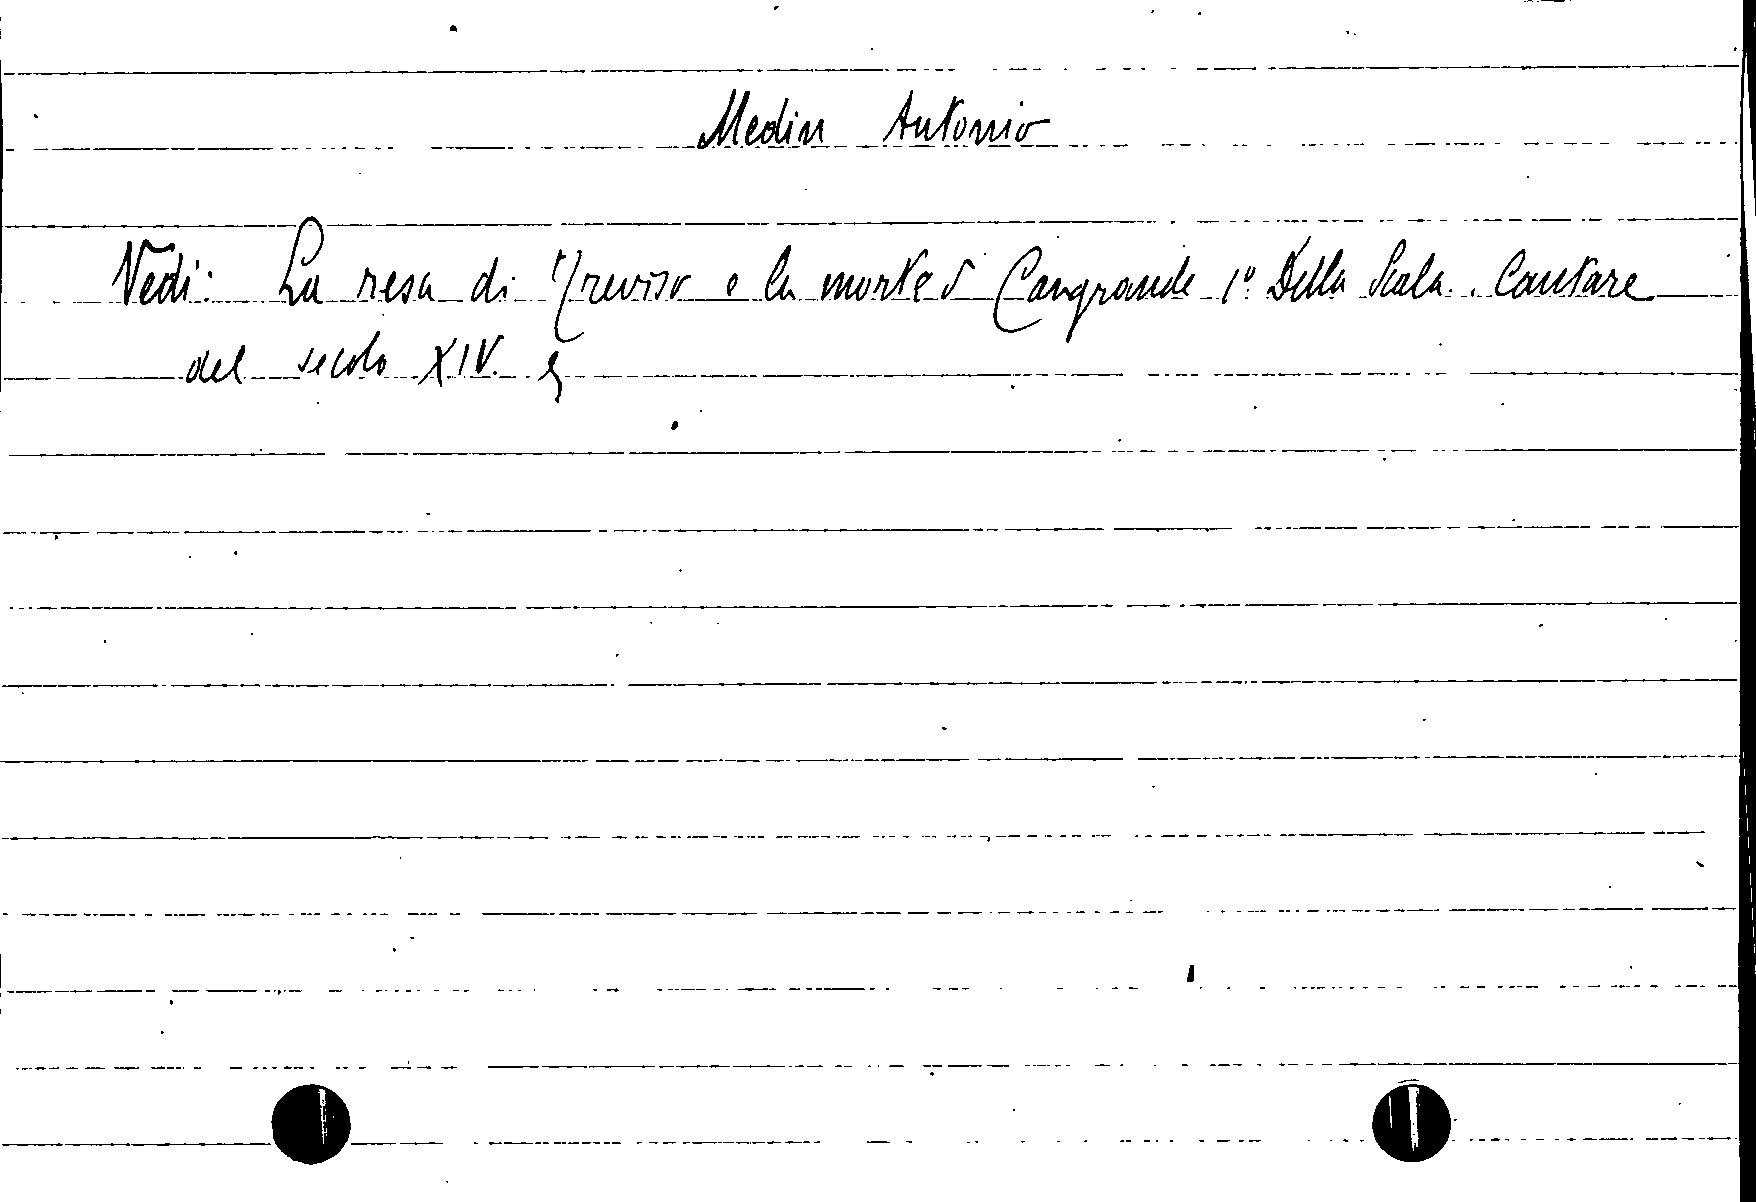 Medin Antonio
Vedi: La resa di Treviso e la morte di Cangrande 1° Della Scala. Cantare
del secolo XIV.